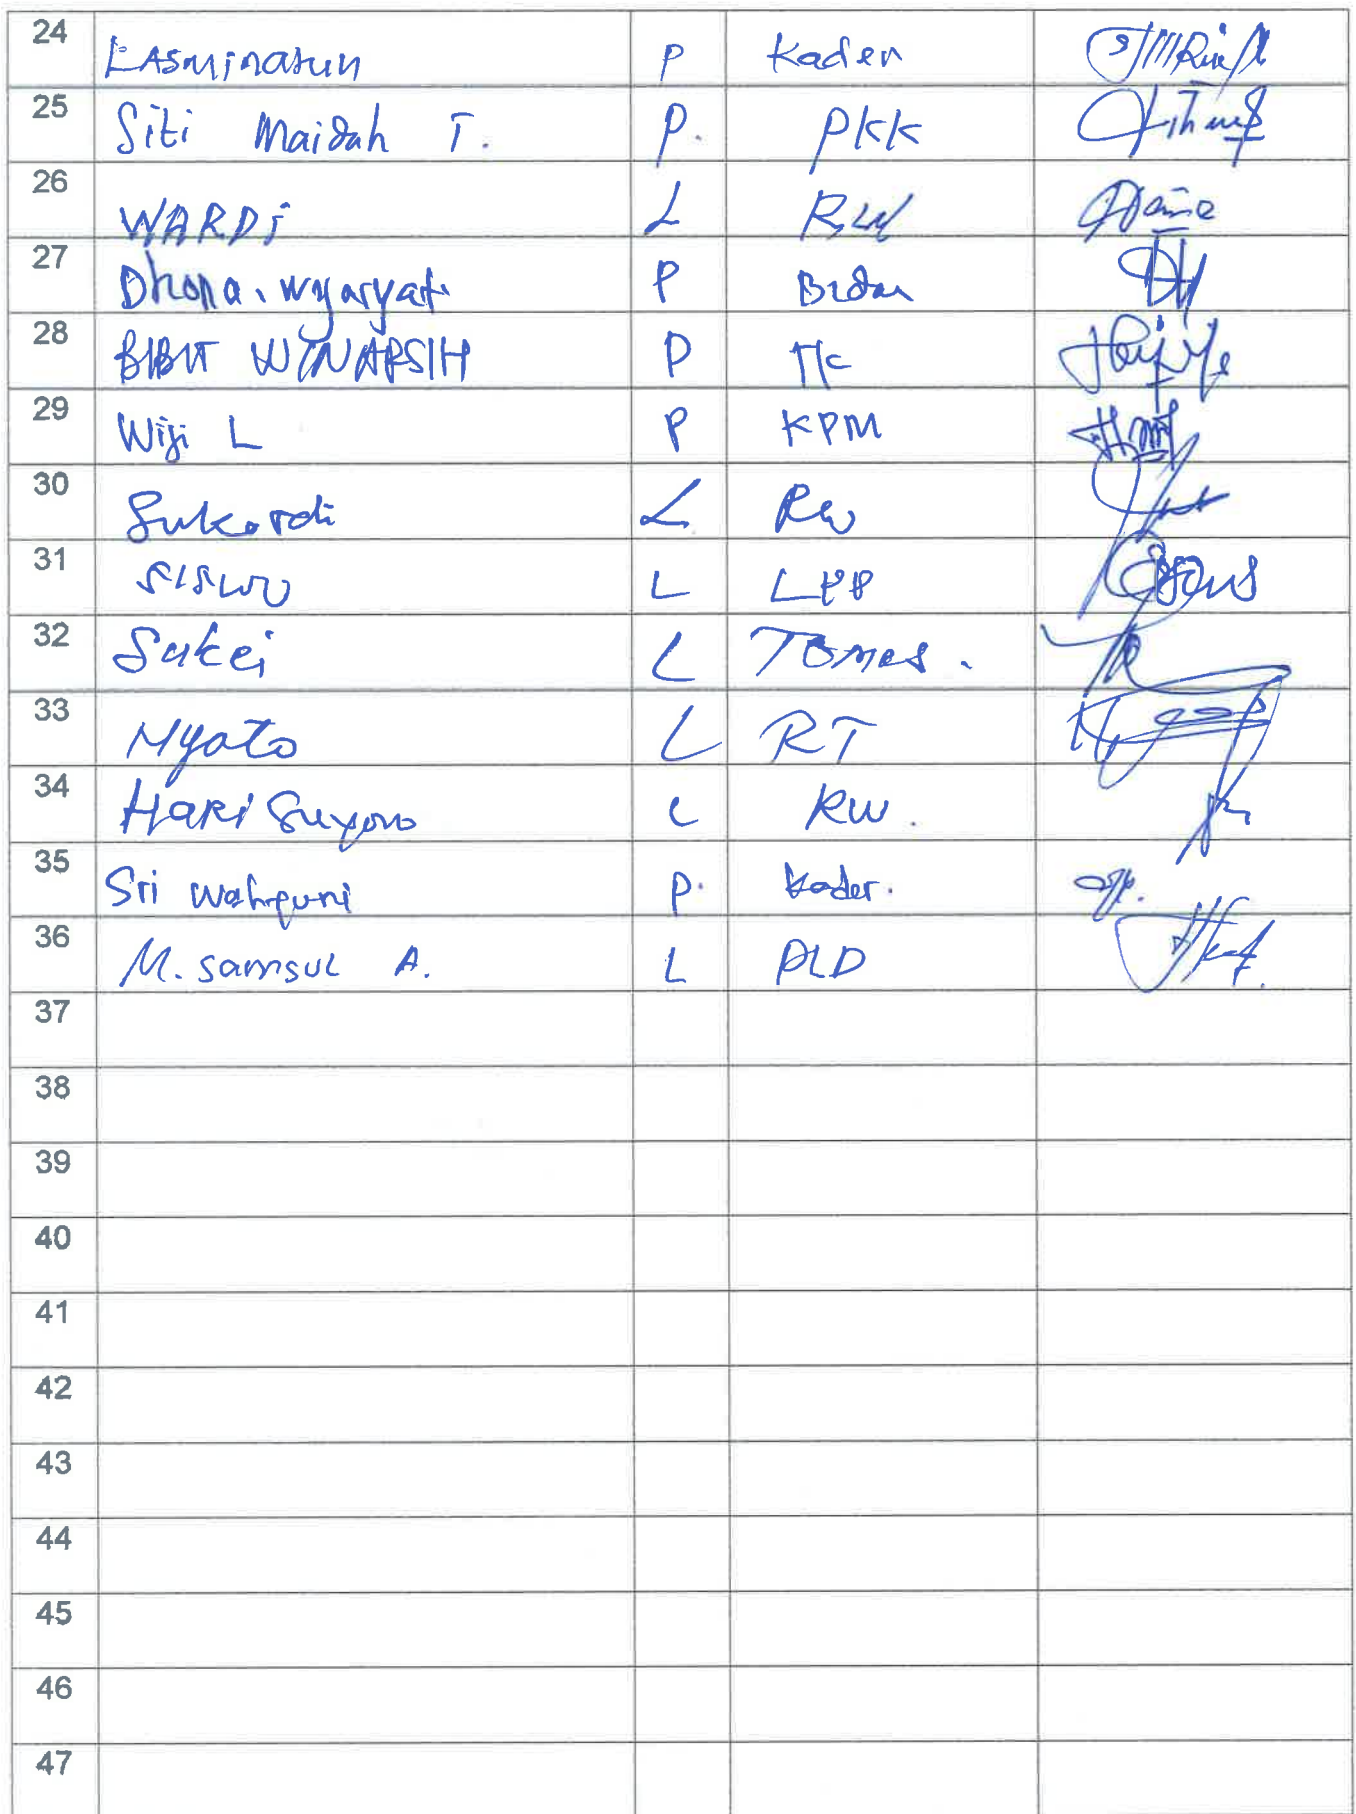 24 LASMINATUN P Kader
25 Siti Maidah T. P. PKK
26 WARDi L RW
27 Dhona. wyaryati P Bidan
28 BIBIT WINARSIH P TK
29 Wiji L P KPM
30 Sukardi L RW
31 SISWO L
32 Sukei L TOMAS.
33 Myoto L RT
34 HARI Suyono L RW.
35 Sri Wahyuni P. kader.
36 M. SAMSUL A. L PLD
37
38
39
40
41
42
43
44
45
46
47